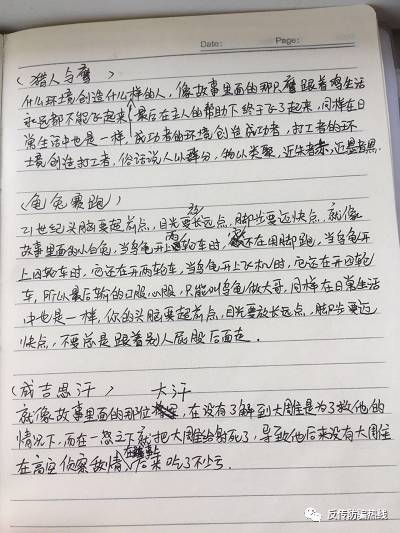 Date: Page:
(猎人与鹰)
什么环境创造什么样的人，像故事里面的那只鹰跟着鸡生活
永远都不能飞起来，最后在主人的帮助下终于飞了起来，同样在日
常生活中也是一样，成功者的环境创造成功者，打工者的环
境创造打工者，俗话说人以群分，物以类聚，近朱者赤，近墨者黑.
(龟兔赛跑)
21世纪头脑要超前点，目光要放长远点，脚步要迈快点，就像
故事里面的小白兔，当乌龟开上两轮车时，还在用脚跑，当乌龟开
上四轮车时，它还在开两轮车，当乌龟开上飞机时，它还在开四轮
车，所以最后输的口服心服，只能叫乌龟做大哥，同样在日常生活
中也是一样，你的头脑要超前点，目光要放长远点，脚步要迈
快点，不要总是跟着别人屁股后面走.
(成吉思汗)
就像故事里面的那位大汗，在没有了解到大雕是为了救他的
情况下，而在一怒之下就把大雕给射死了，导致他后来没有大雕
在高空侦察敌情，在战争上后来吃了不少亏.
反传防骗热线